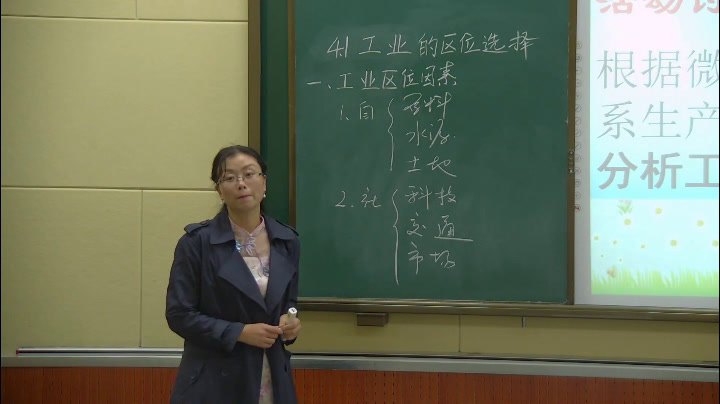 4.1 工业的区位选择
一、工业区位因素
1. 自 原料
水源
土地
2. 社 科技
交通
市场
活动讨
根据微
系生产
分析工